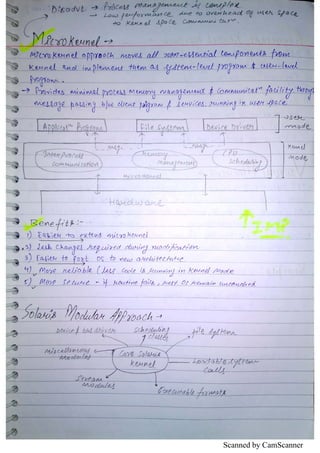 Disadvt → Process management is complex
→ Low performance due to overhead of user space
to Kernel space communication.
Microkernel →
Microkernel approach moves all non-essential components from
Kernel and implement them as system-level program & user-level
Program.
→ Provides minimal process memory management & communicatn facility through
message passing b/w client program & services running in user space.
Applicatn Program File System Device Driver user
mode
msg. msg.
Interprocess Memory CPU Kernel
communication management scheduling mode
microkernel
Hardware
Benefits:- IMP
1) Easier to extend microkernel
2) Less changes required during modification
3) Easier to port OS to new architecture
4) More reliable (less code is running in Kernel mode
5) More secure - if routine fails, rest OS remain untouched
Solaris Modular Approach →
Device & bus driver scheduling file system
classes
miscellaneous Core Solaris
modules Kernel Loadable system
calls
Stream
modules Executable formats
Scanned by CamScanner